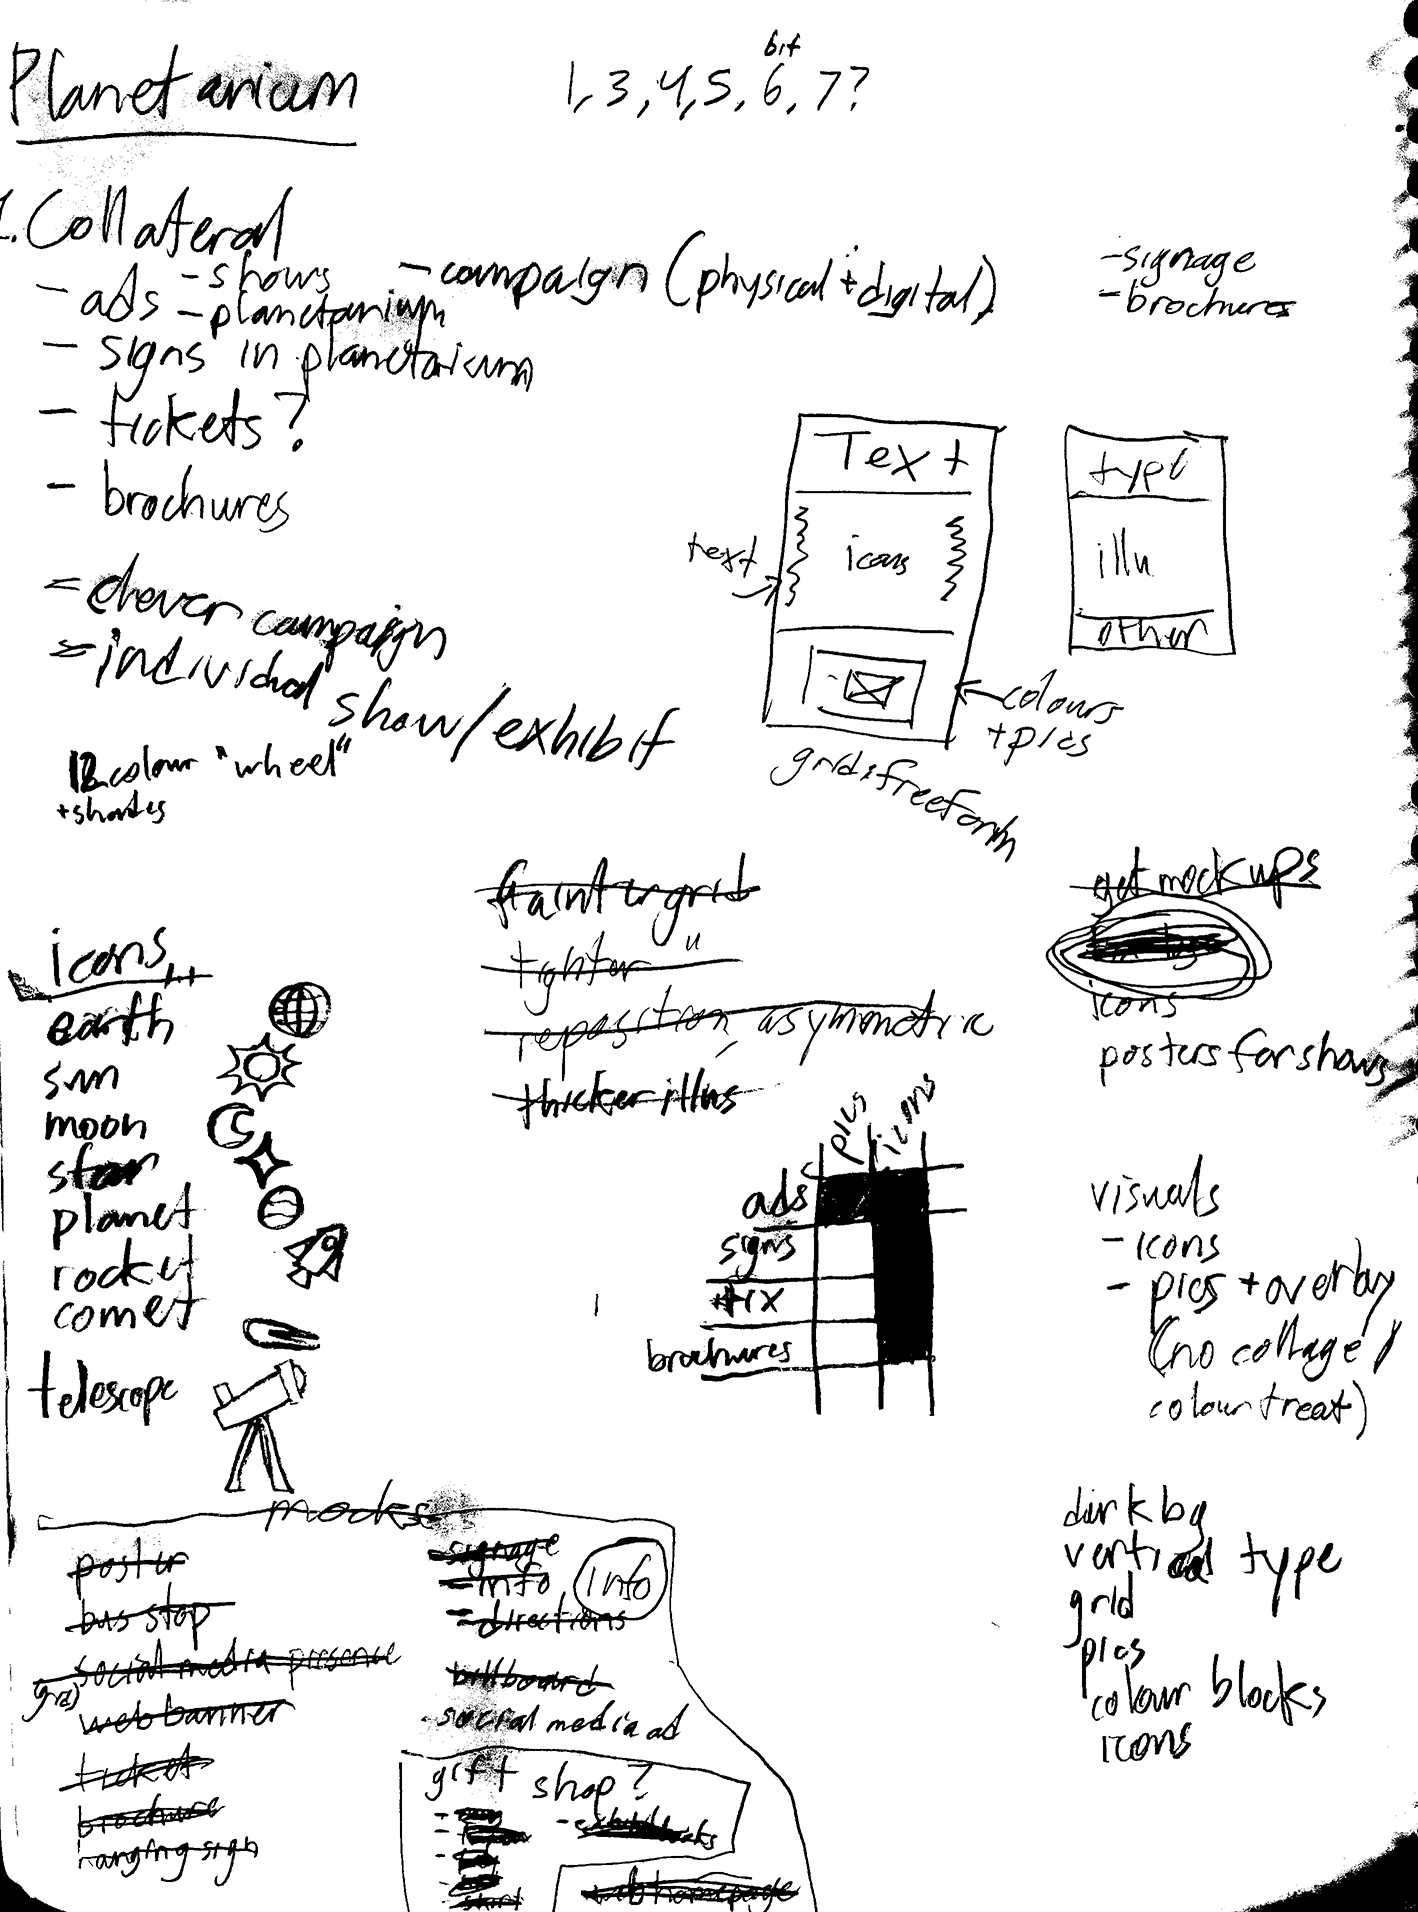 Planetarium
bit
1, 3, 4, 5, 6, 7?
1. Collateral
- ads - shows
- planetarium
- campaign (physical + digital)
- signage
- brochures
- signs in planetarium
- tickets?
- brochures
- clever campaign
- individual show/exhibit
12 colour "wheel"
+ shades
Text
text
icons
colours
+ pics
grid & freeform
type
illu
other
fainter grid
tighter "
reposition, asymmetric
thicker illus
get mockups
icons
posters for shows
icons
earth
sun
moon
star
planet
rocket
comet
telescope
pics
icons
ads
signs
tix
brochures
visuals
- icons
- pics + overlay
(no collage /
colour treat)
dark bg
vertical type
grid
pics
colour blocks
icons
mocks
poster
bus stop
social media presence
web banner
ticket
brochure
hanging sign
signage
- info
info
- directions
billboard
- social media ad
gift shop?
web homepage